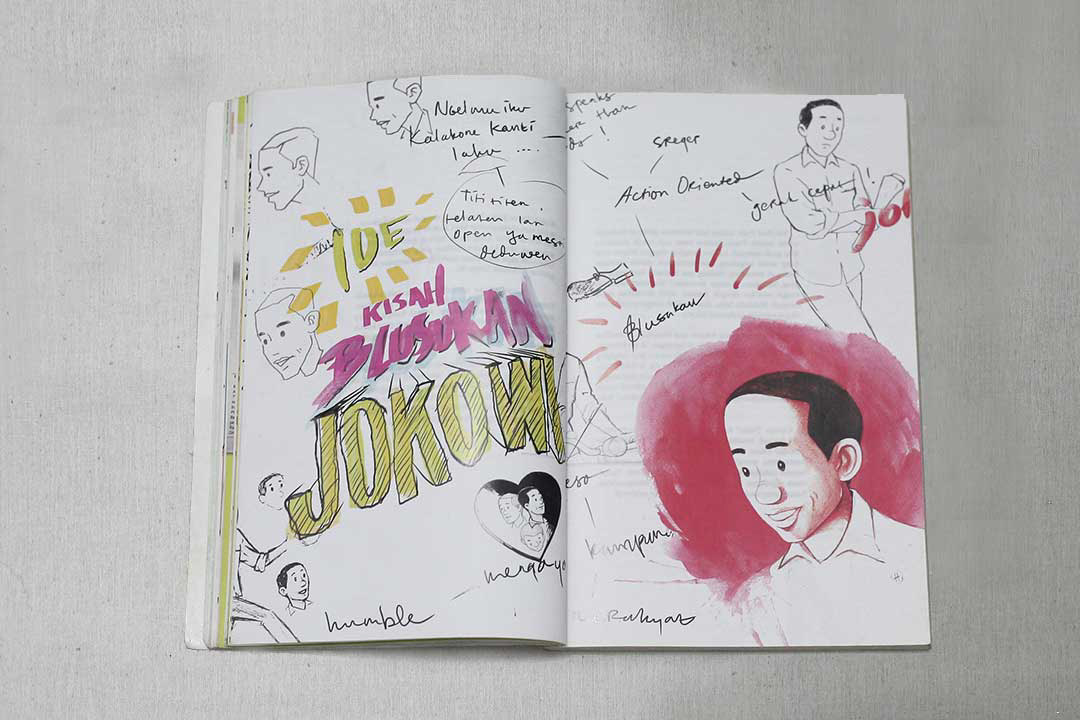 Ngelmu iku
Kalakone Kanti
laku ....
Tititiren.
relaren lan
open ya mesti
deduwen
IDE
KISAH
BLUSUKAN
JOKOWI
humble
speaks
than
!
sreger
Action Oriented
gerak cepat!
JOK
Blusukan
kampung
Rakyat